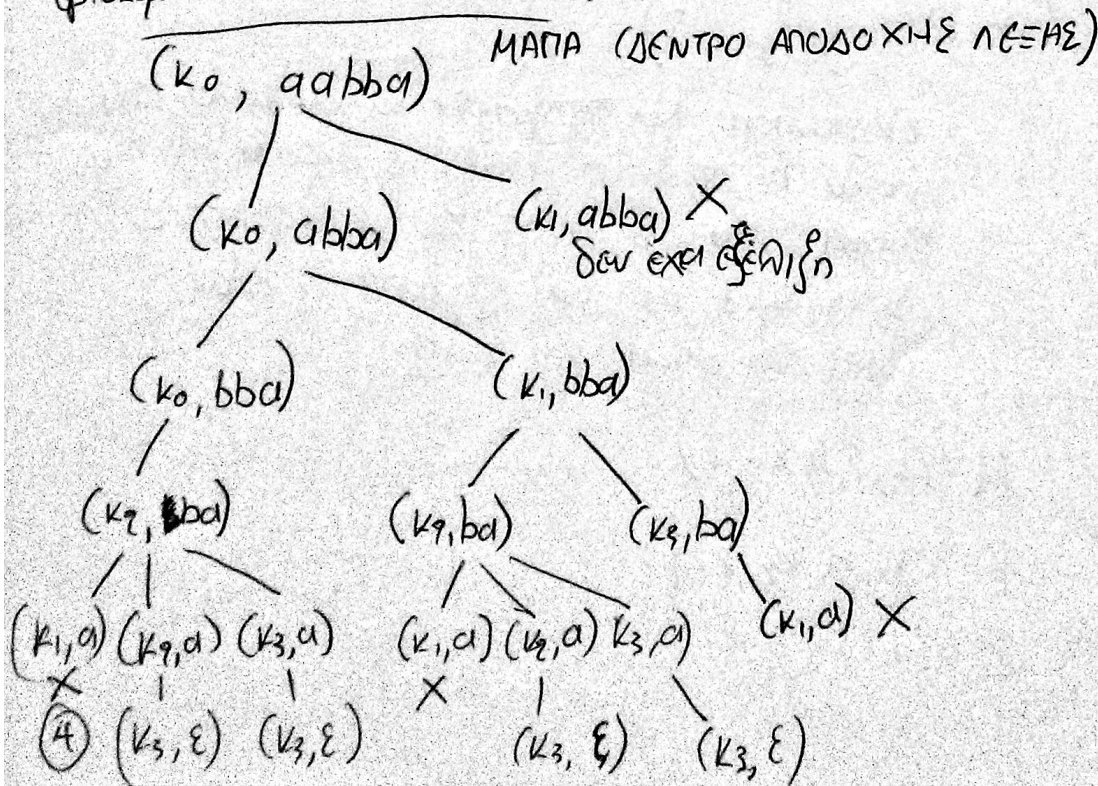 ΜΑΠΑ (ΔΕΝΤΡΟ ΑΠΟΔΟΧΗΣ ΛΕΞΗΣ)
(κ0, aabba)
(κ0, abba) (κ1, abba) X
δεν έχει εξέλιξη
(κ0, bba) (κ1, bba)
(κ2, ba) (κ2, ba) (κ3, ba)
(κ1, a) (κ2, a) (κ3, a) (κ1, a) (κ2, a) κ3, a) (κ1, a) X
X X
④ (κ3, ε) (κ3, ε) (κ3, ε) (κ3, ε)